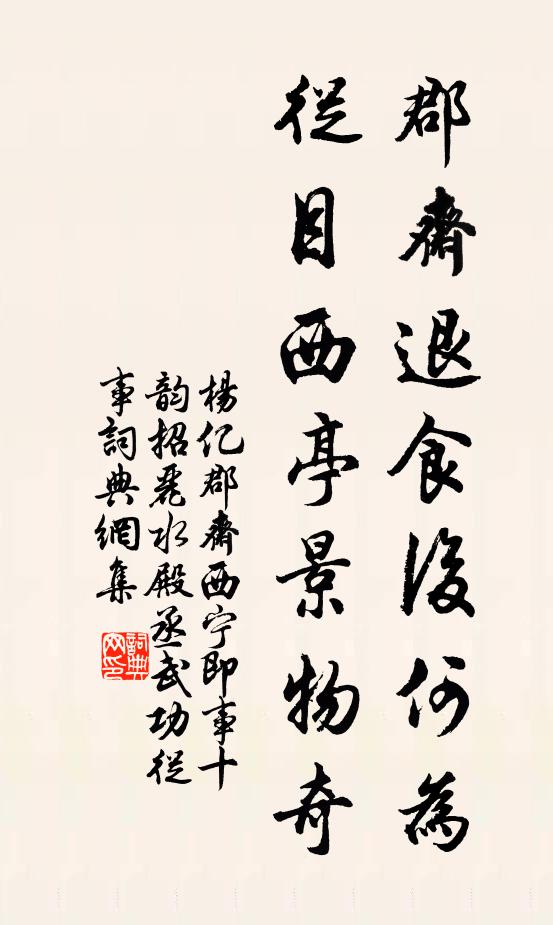 郡齋退食復何為
從目西亭景物奇
楊亿郡齋西宁即事十
韵招麗水殿丞武功從
事詞典網集
詞典网印